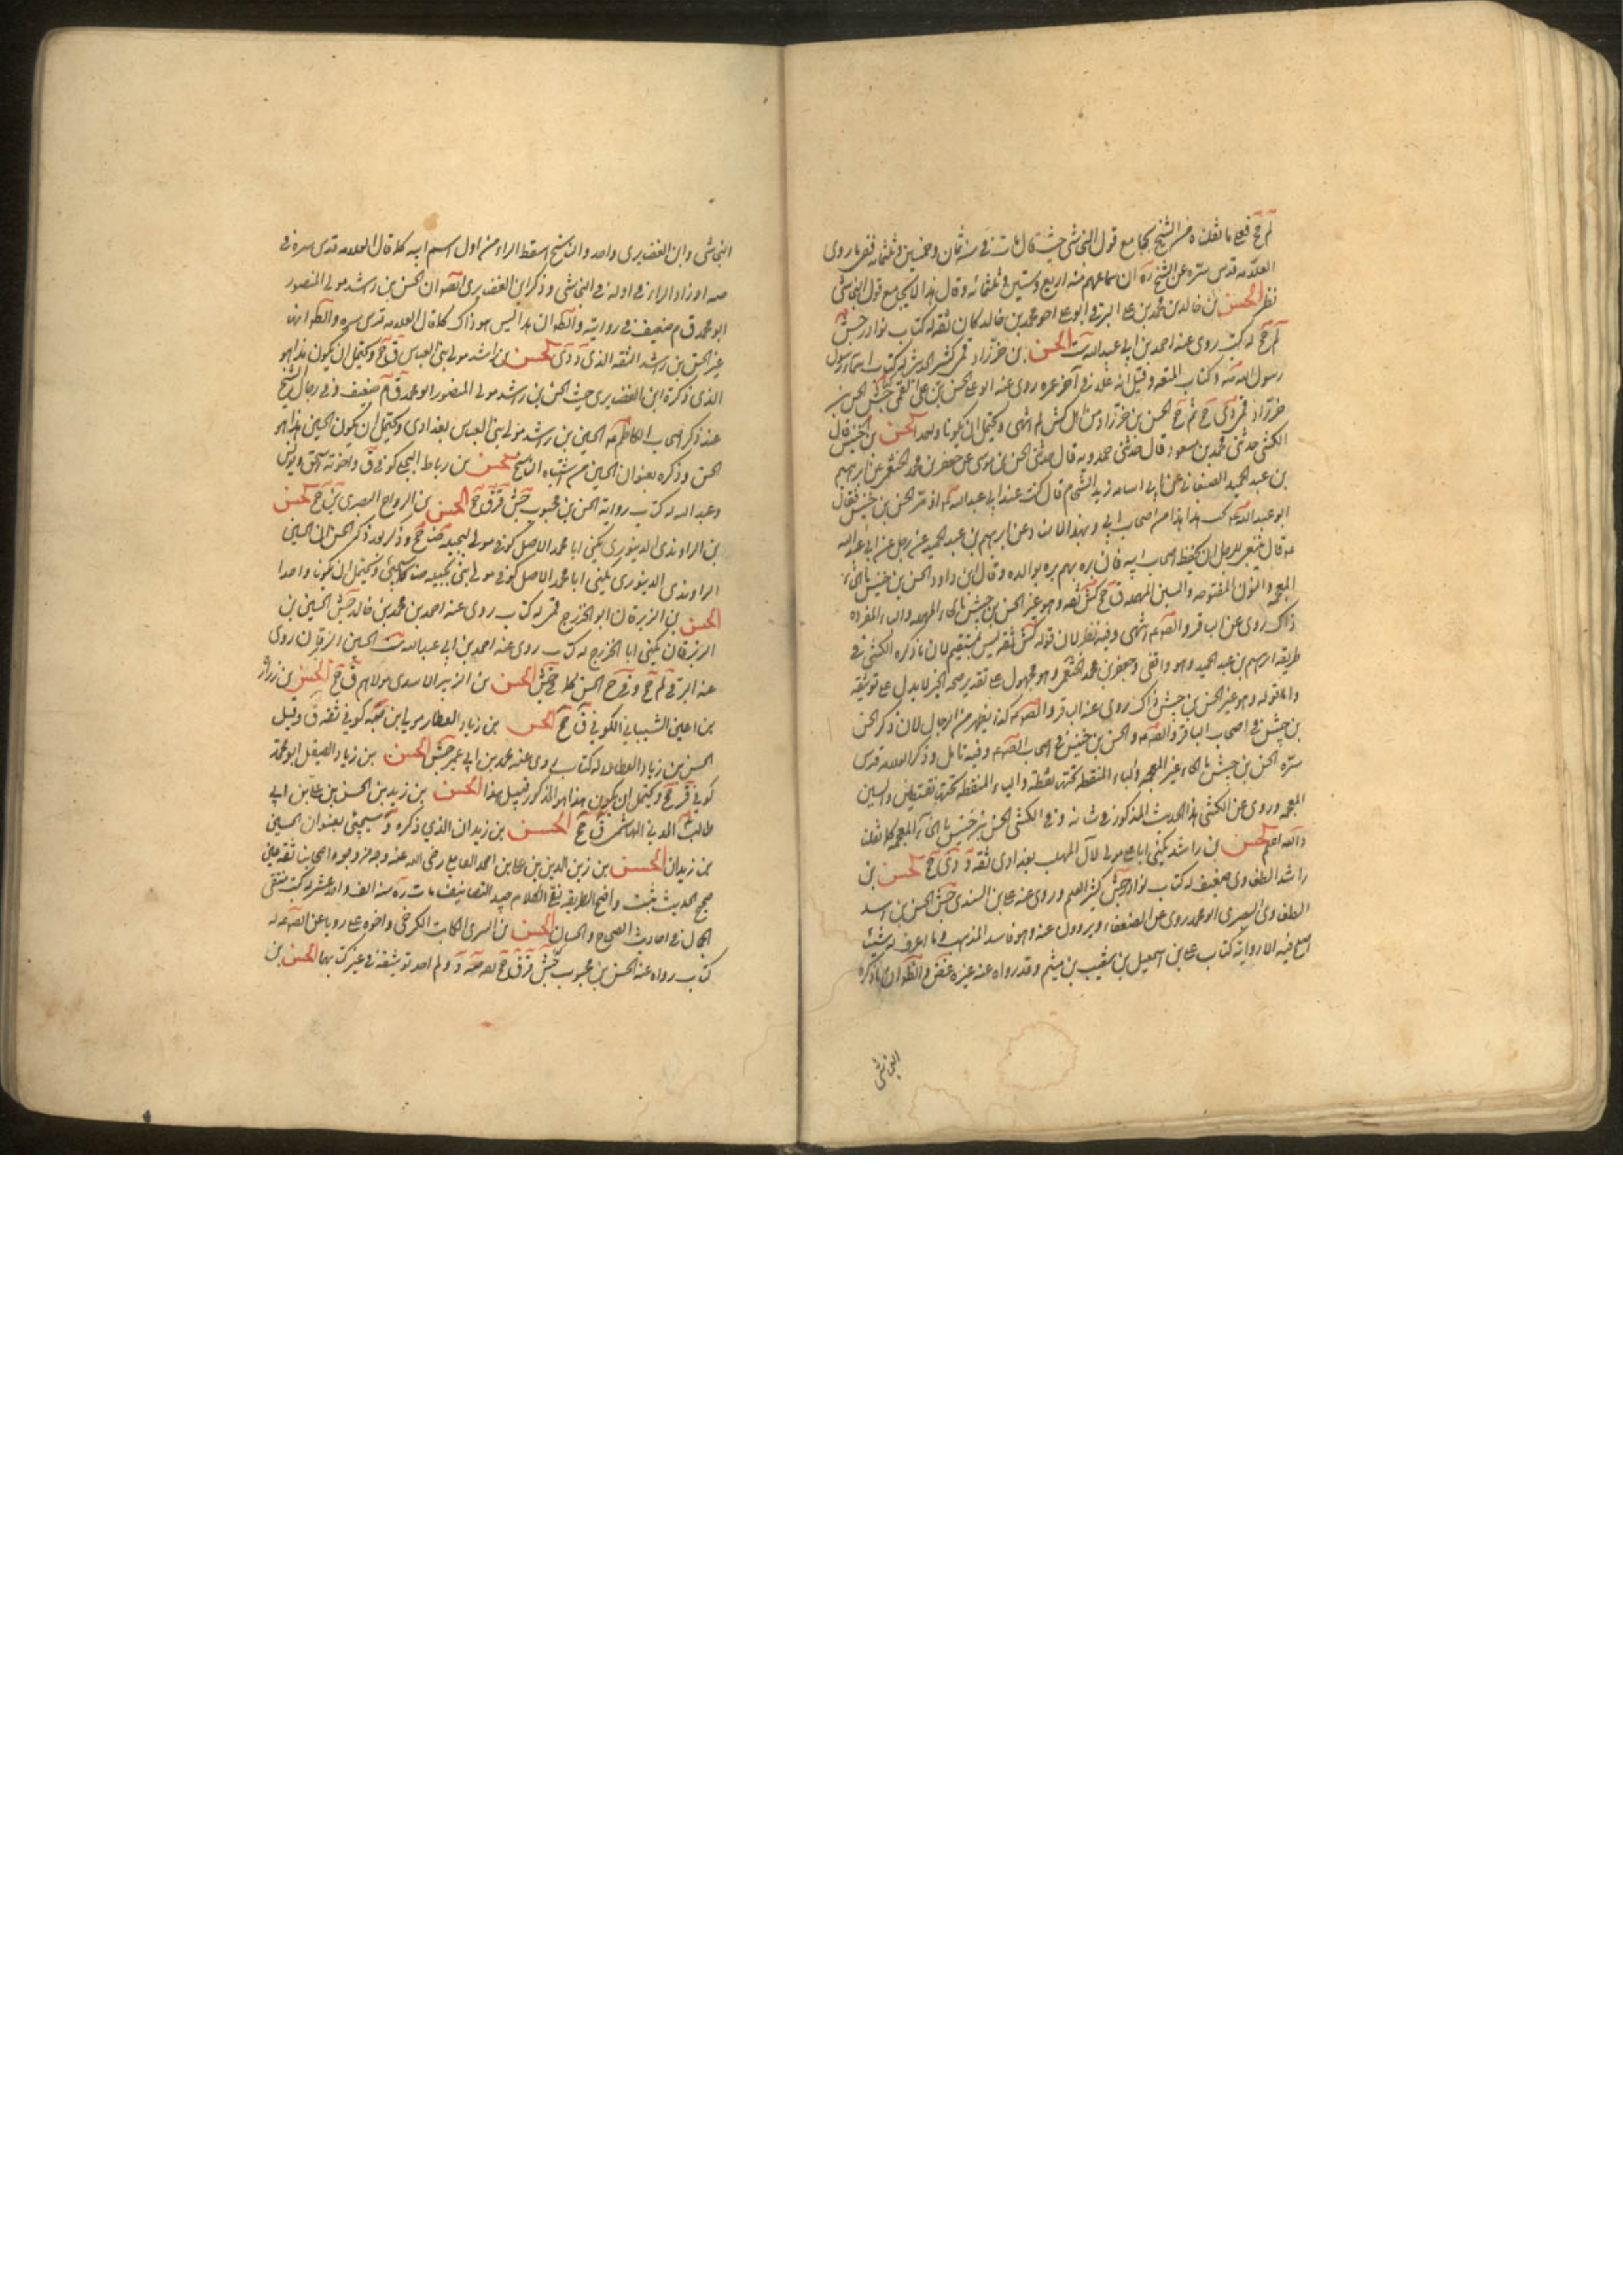 لم جخ فعلى ما نقلناه من الشيخ يجامع قول النجاشي حيث قال مات في سنة ثمان وخمسين وثلثمائة فقر ما روى
العلامه قدس سره عن الشيخ ره ان سماعهم منه اربع وستين وثلثمائه وقال هذا لا يجامع قول النجاشي
نظر الحسن بن خالد بن محمد بن علي البرقي ابو علي اخو محمد بن خالد كان ثقه له كتاب نوادر جش
لم جخ له كتب روى عنه احمد بن ابي عبد الله ست الحسن بن خرزاد قمي كثير الحديث له كتاب اسماء رسول
رسول الله وكتاب المتعه وقيل انه غلا في آخر عمره روى عنه ابو علي الحسن بن علي القمي جش الحسن بن
خرزاد قمي دي جخ ثم جخ الحسن بن خرزاد من اهل كش لم انتهى ويحتمل ان يكونا واحدا الحسن بن خنيس قال
الكشي حدثني محمد بن مسعود قال حدثني حمدويه قال حدثني الحسن بن موسى عن جعفر بن محمد الخثعمي عن ابرهيم
بن عبد الحميد الصنعاني عن ابي اسامه زيد الشحام قال كنت عند ابي عبد الله اذ مر الحسن بن خنيس فقال
ابو عبد الله تحب هذا هذا من اصحاب ابي وبهذا الاسناد عن ابرهيم بن عبد الحميد عن رجل عن ابي عبد الله
قال ينبغي للرجل ان يحفظ اصحاب ابيه فان بره بهم بره بوالده وقال ابن داود الحسن بن خنيس بالخاء
المعجمه والنون المفتوحه والسين المهمله ق جخ كش ثقه وهو غير الحسن بن حبش بالحاء المهمله والباء المفرده
ذاك روى عن الباقر والصادق انتهى وفيه نظر لان قوله كش ثقه ليس بمستقيم لان ما ذكره الكشي في
طريقه ابرهيم بن عبد الحميد وهو واقفي وجعفر بن محمد الخثعمي وهو مجهول على تقدير صحه الخبر لا يدل على توثيقه
واما قوله وهو غير الحسن بن حبش ذاك روى عن الباقر والصادق كذا يظهر من الرجال لان ذكر الحسن
بن حبش في اصحاب الباقر والصادق والحسن بن خنيس في اصحاب الصادق وفيه تامل وذكر العلامه قدس
سره الحسن بن حبش بالحاء غير المعجمه والباء المنقطه تحتها نقطه والياء المنقطه تحتها نقطتين والسين
المعجمه وروى عن الكشي هذا الحديث المذكور في شانه وفي الكشي الحسن بن خنيس بالخاء المعجمه كما نقلنا
والله اعلم الحسن بن راشد يكنى ابا علي مولى لآل المهلب بغدادي ثقه د دي جخ الحسن بن
راشد الطفاوي ضعيف له كتاب نوادر جش كثير العلم وروى عنه علي بن السندي جش الحسن بن اسد
الطفاوي البصري ابو محمد روى عن الضعفاء ويروون عنه وهو فاسد المذهب وما اعرف له شيئا
اصلح فيه الا روايته كتاب علي بن اسمعيل بن شعيب بن ميثم وقد رواه عنه غيره غض والظاهر ان ما ذكره
النجاشي
النجاشي وابن الغضايري واحد والناسخ اسقط الراء من اول اسم ابيه كما قال العلامه قدس سره في
صه او زاد الراء في اوله في النجاشي وذكر ابن الغضايري ايضا ان الحسن بن راشد مولى المنصور
ابو محمد ق م ضعيف في روايته والظاهر ان هذا ليس هو ذاك كما قال العلامه قدس سره والظاهر انه
غير الحسن بن راشد الثقه الذي د دي الحسن بن راشد مولى بني العباس ق جخ ويحتمل ان يكون هذا هو
الذي ذكره ابن الغضايري حيث الحسن بن راشد مولى المنصور ابو محمد ق م ضعيف وفي رجال الشيخ
عند ذكر اصحاب الكاظم الحسين بن راشد مولى بني العباس بغدادي ويحتمل ان يكون الحسين هذا هو
الحسن وذكره بعنوان الحسين من اشتباه الناسخ الحسن بن رباط البجلي كوفي ق واخوته اسحق ويونس
وعبد الله له كتاب رواية الحسن بن محبوب جش قر ق جخ الحسن بن الرواح البصري ين جخ الحسن
بن الراوندي الدينوري يكنى ابا محمد الاصل كوفي مولى لبجيله ضا جخ وذكر بعد ذكر الحسن ان الحسين
الراوندي الدينوري يكنى ابا محمد الاصل كوفي مولى بني بجيله ضا كما سيجئ ويحتمل ان يكونا واحدا
الحسن بن الزبرقان ابو الخزرج قمي له كتاب روى عنه احمد بن محمد بن خالد جش الحسين بن
الزبرقان يكنى ابا الخزرج له كتاب روى عنه احمد بن ابي عبد الله ست الحسين الزبرقان روى
عنه البرقي لم جخ وفي جخ الحسن كما في جش الحسن بن الزبير الاسدي مولاهم ق جخ الحسن بن زرارة
بن اعين الشيباني الكوفي ق جخ الحسن بن زياد العطار مولى بني ضبه كوفي ثقه ق وقيل
الحسن بن زياد العطار له كتاب روى عنه محمد بن ابي عمير جش الحسن بن زياد الصيقل ابو محمد
كوفي قر جخ ويحتمل ان يكون هذا هو المذكور قبيل هذا الحسن بن زيد بن الحسن بن علي بن ابي
طالب المدني الهاشمي ق جخ الحسن بن زيدان الذي ذكره د سيجئ بعنوان الحسين
بن زيدان الحسن بن زين الدين بن علي بن احمد العاملي رضي الله عنه وجه من وجوه اصحابنا ثقه عين
صحيح الحديث ثبت واضح الطريقه نقي الكلام جيد التصانيف مات ره سنه الف واحد عشر له كتب منتقى
الجمان في احاديث الصحاح والحسان الحسن بن السري الكاتب الكرخي واخوه علي رويا عن الصادق له
كتاب رواه عنه الحسن بن محبوب جش قر ق جخ صه د ولم اجد توثيقه في غير كتابهما الحسن بن